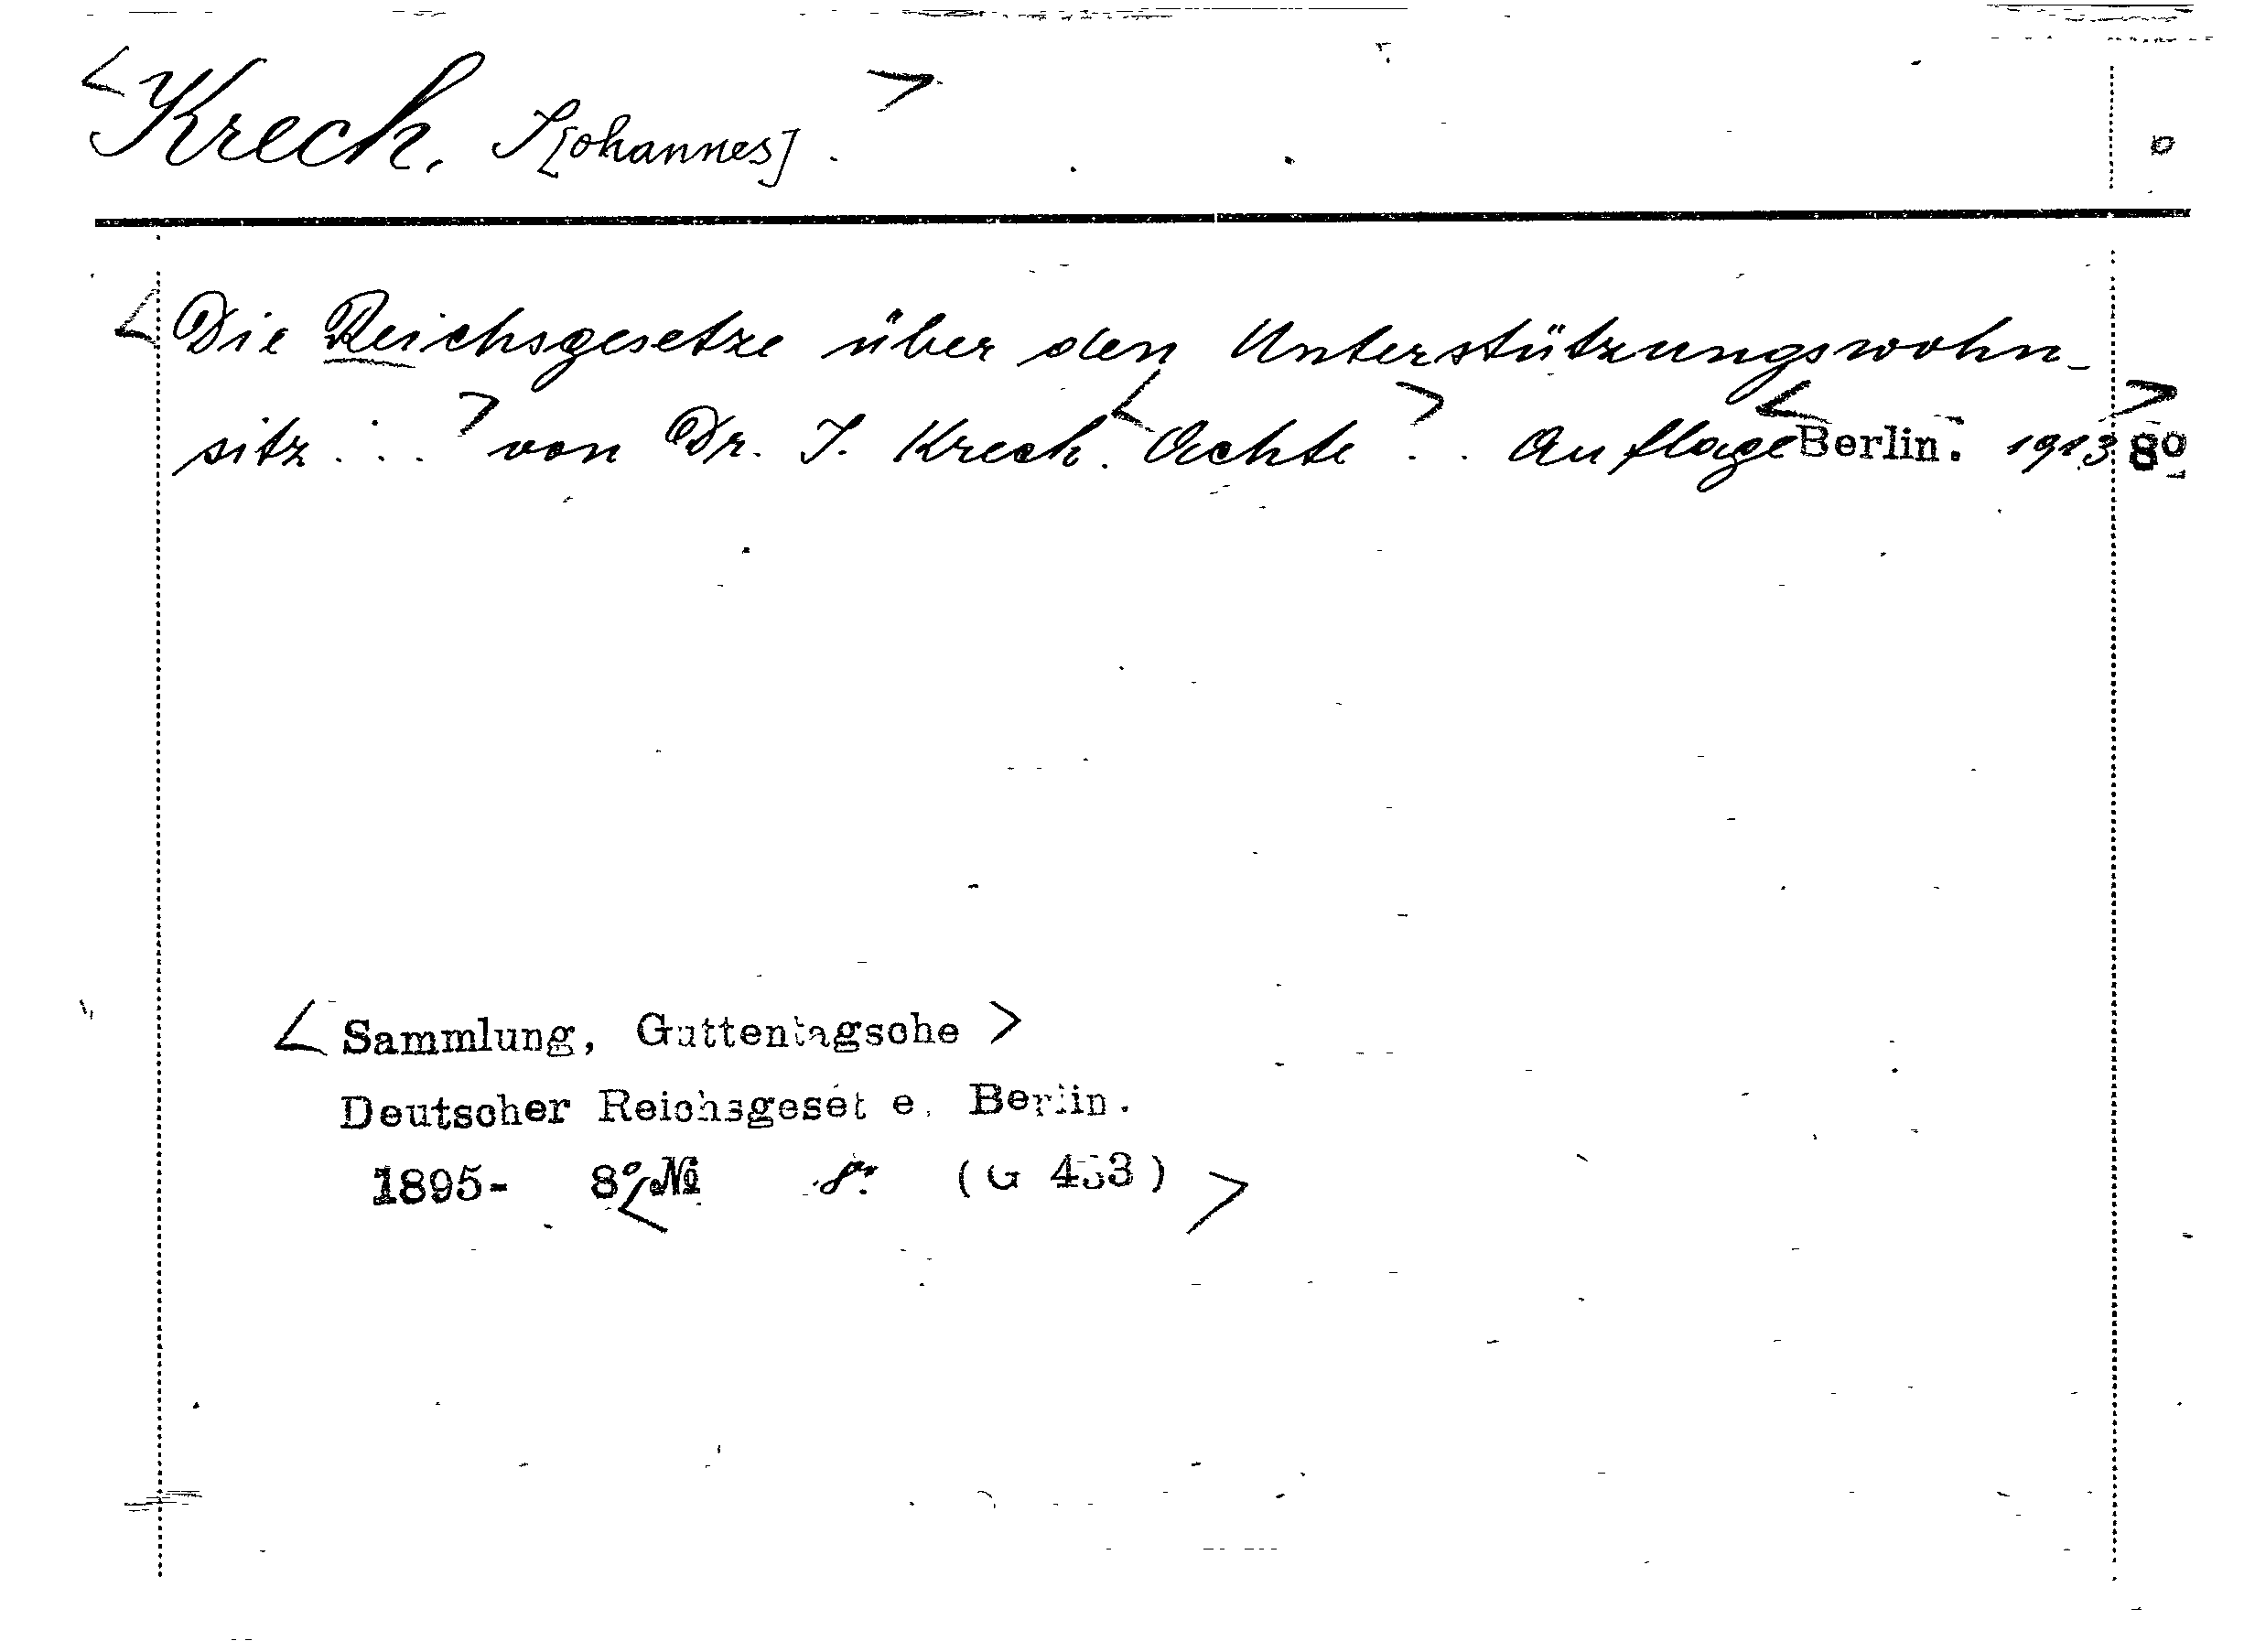 <Krech, J[ohannes]. >
<Die Reichsgesetze über den Unterstützungswohn-
sitz ... > von Dr. J. Krech. <Achte> .. Auflage <Berlin. 1913 8o>
<Sammlung, Guttentagsche>
Deutscher Reichsgeset e. Berlin.
1895- 8o <№ 8. (G 433)>